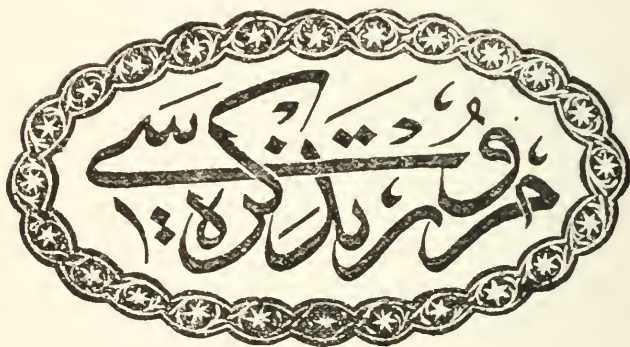 مرور تذكره سي